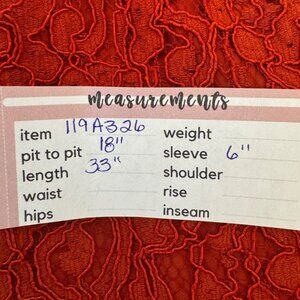 measurements
item 119A326 weight
pit to pit 18" sleeve 6"
length 33" shoulder
waist rise
hips inseam